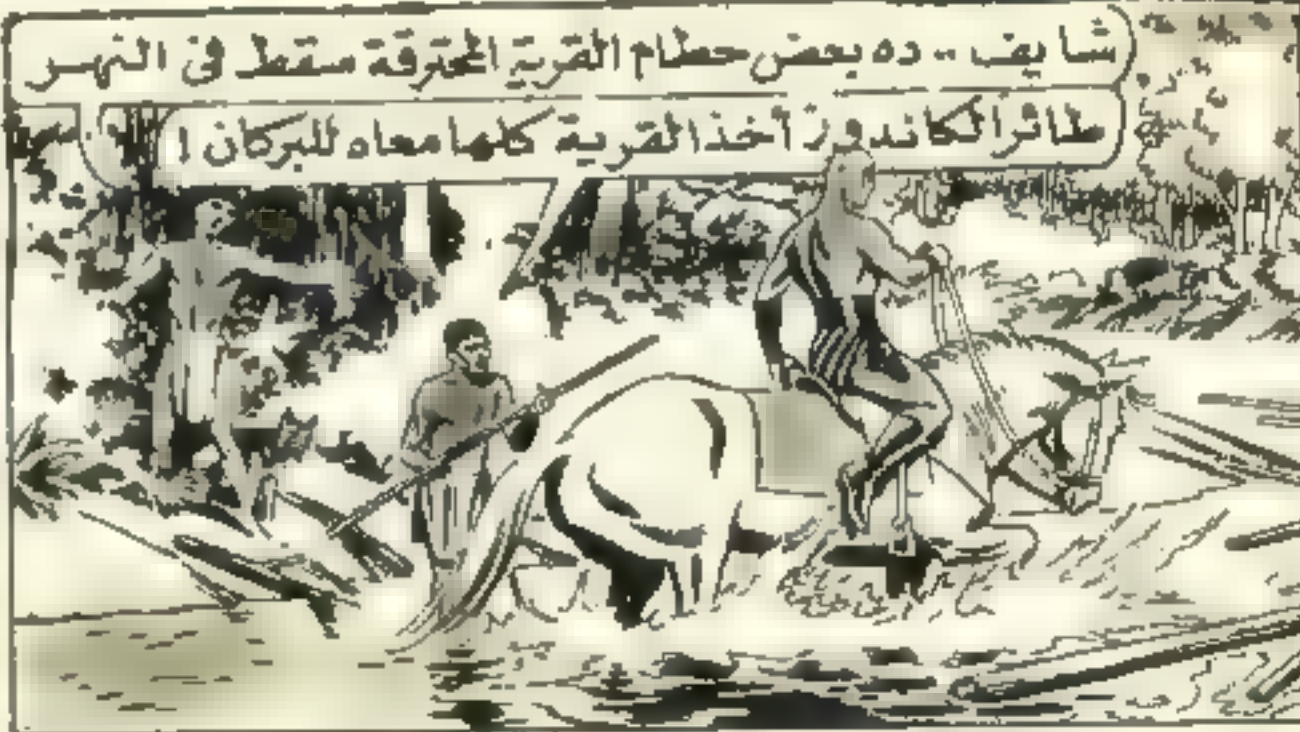 شايف .. ده بعض حطام القرية المحترقة سقط فى النهر
طائر الكاندور أخذ القرية كلها معاه للبركان !